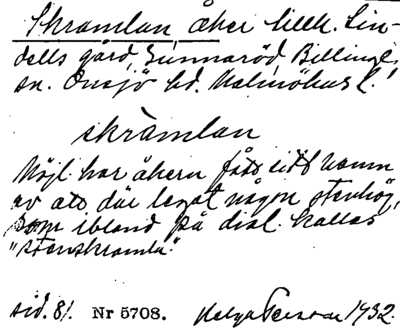 Skramlan åker tillh. Lin-
dells gård, Gunnaröd, Billinge
sn. Onsjö hd. Malmöhus l.
skràmlan
Möjl. har åkern fått sitt namn
av att där legat någon stenhög,
som ibland på dial. kallas
"stenskramla".
sid. 81. Nr 5708. Helga Persson 1932.